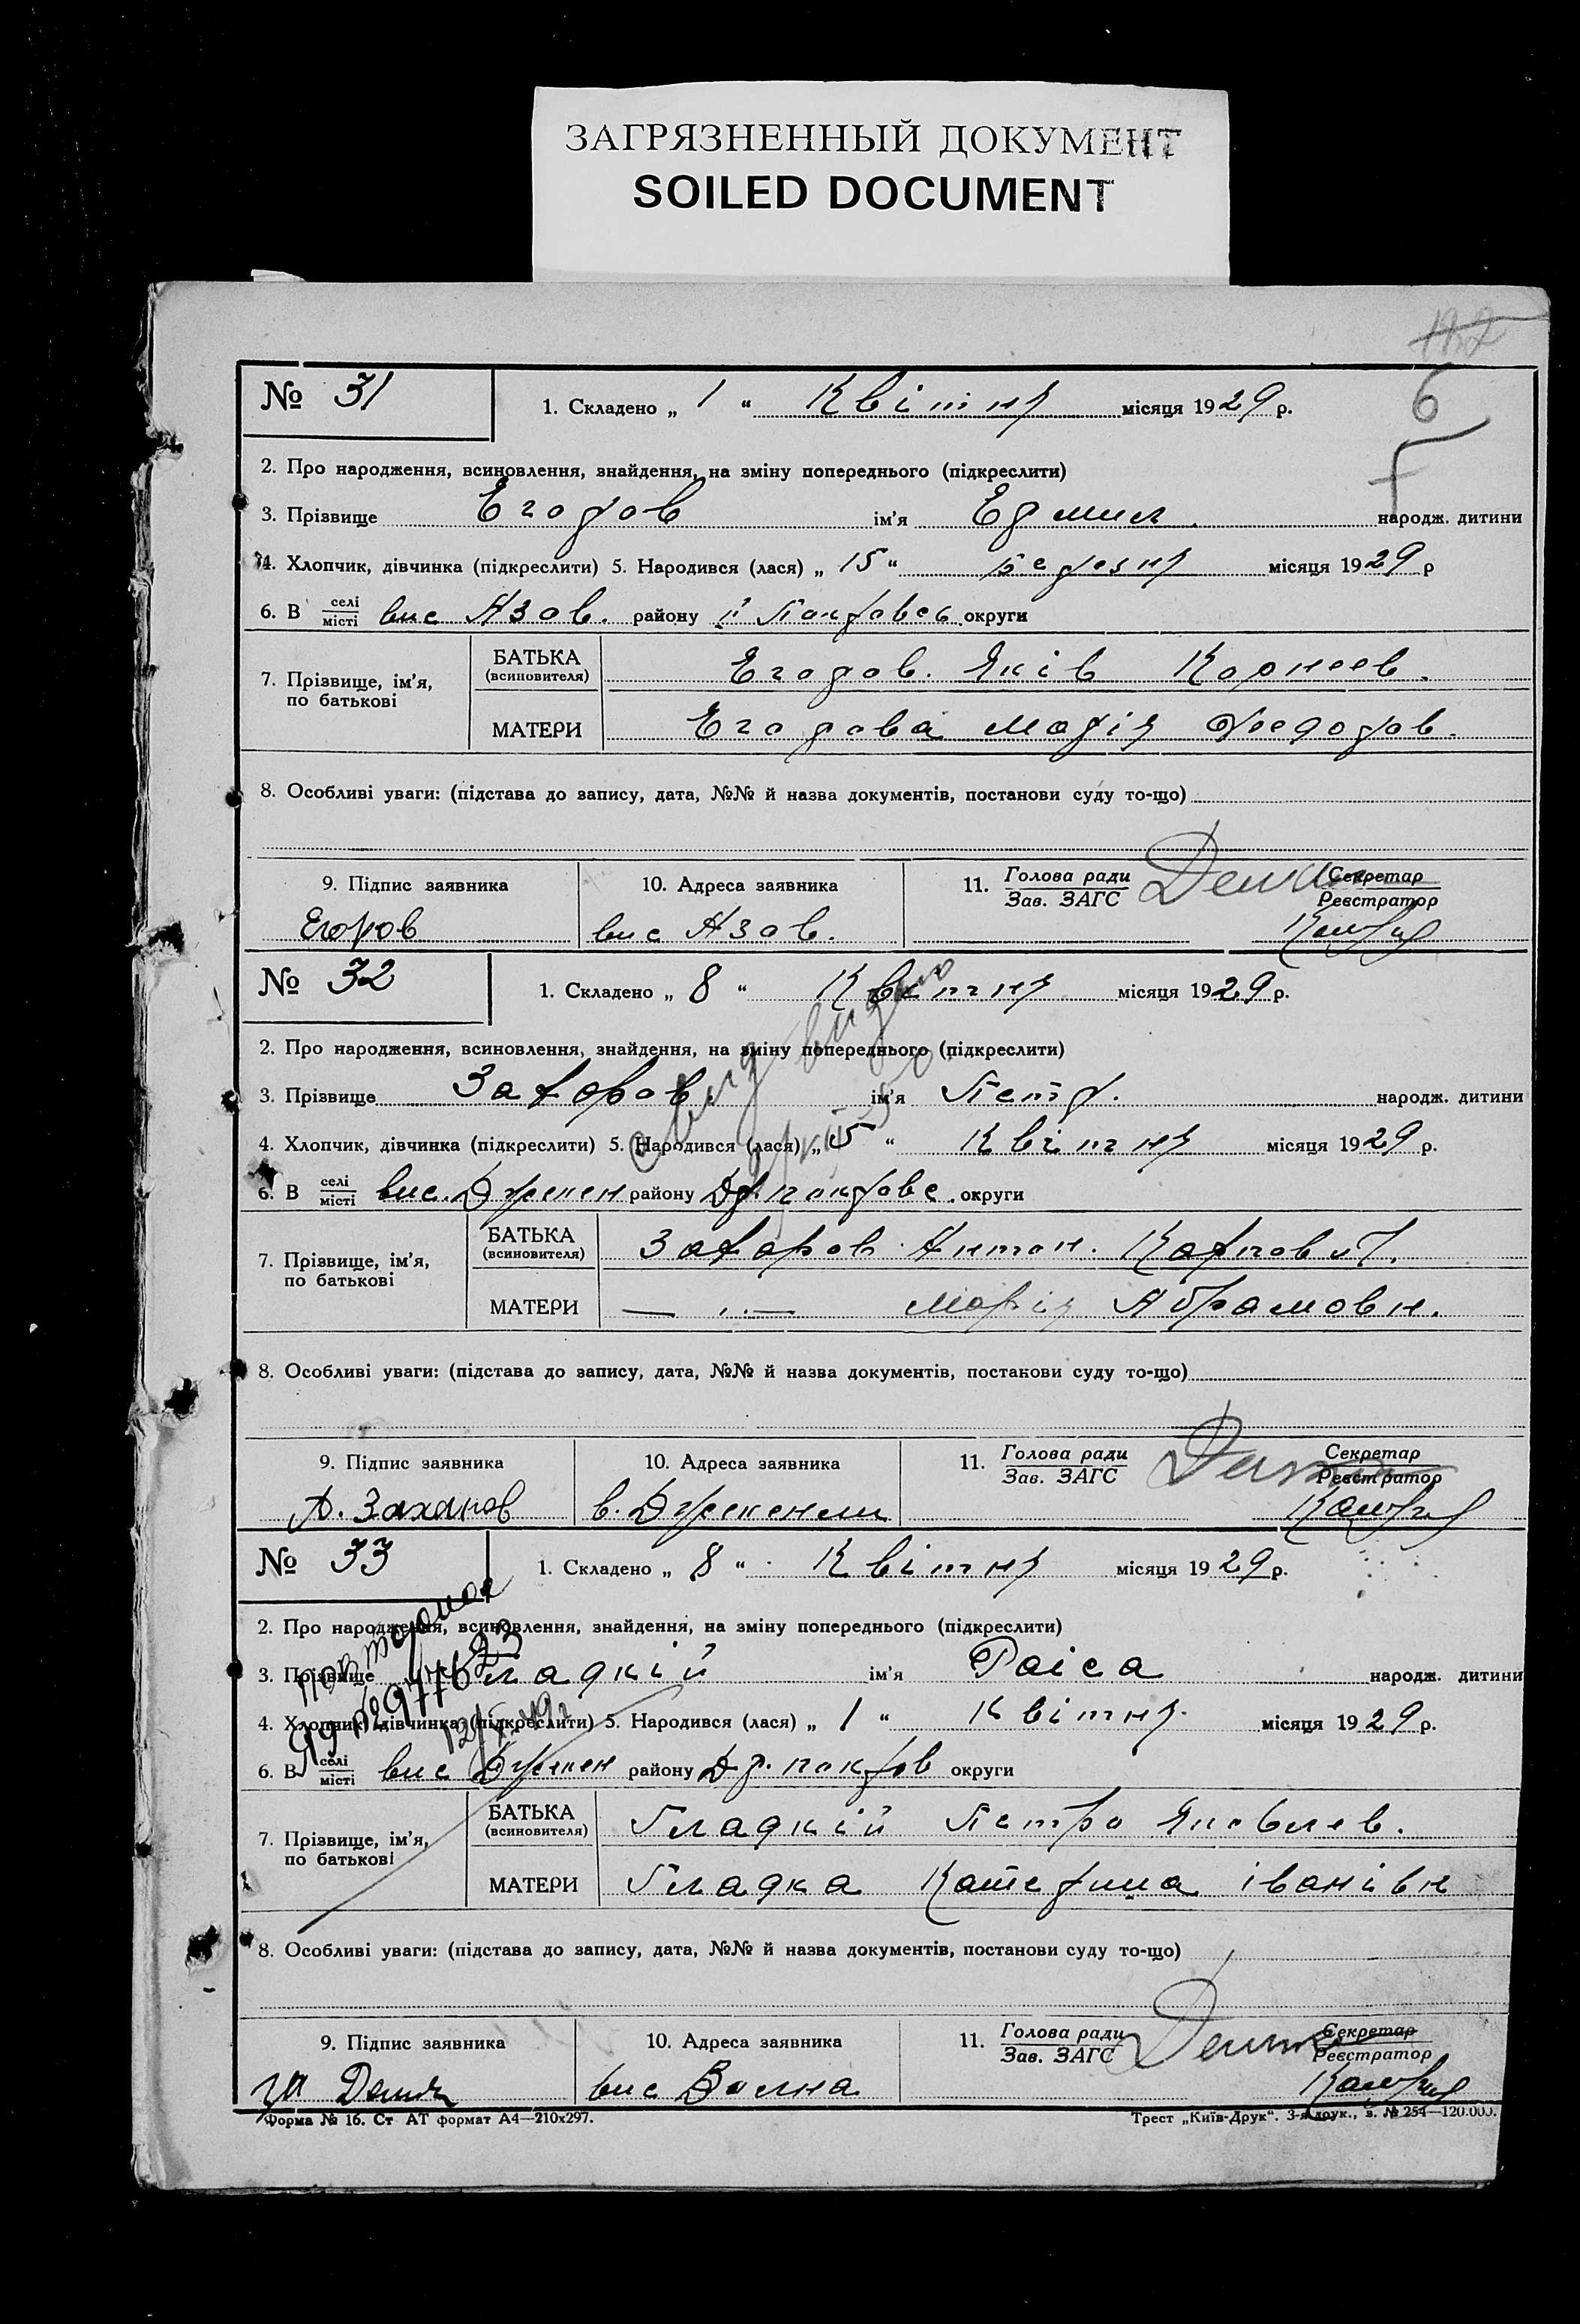 ЗАГРЯЗНЕННЫЙ ДОКУМЕНТ
SOILED DOCUMENT
6
№ 31
1. Складено „ 1 “ Квітня місяця 1929 р.
2. Про народження, всиновлення, знайдення, на зміну попереднього (підкреслити)
3. Прізвище Егоров ім’я народж. дитини
4. Хлопчик, дівчинка (підкреслити) 5. Народився (лася) „ 15 “ березня місяця 1929 р
6. В селі місті вис Азов. району округи
7. Прізвище, ім’я, по батькові
БАТЬКА (всиновителя) Егоров. Яків Корнеев.
МАТЕРИ Егорова Марія Федоров.
8. Особливі уваги: (підстава до запису, дата, №№ й назва документів, постанови суду то-що)
9. Підпис заявника 10. Адреса заявника 11. Голова ради Зав. ЗАГС Секретар Реєстратор
Егоров вис Азов.
№ 32
1. Складено „ 8 “ Квітня місяця 1929 р.
2. Про народження, всиновлення, знайдення, на зміну попереднього (підкреслити)
3. Прізвище Захаров ім’я Петр. народж. дитини
4. Хлопчик, дівчинка (підкреслити) 5. Народився (лася) „ 5 “ Квітня місяця 1929 р.
6. В селі місті вис. Джекен району Др покровс. округи
7. Прізвище, ім’я, по батькові
БАТЬКА (всиновителя) Захаров Антон. Карпович.
МАТЕРИ — „ — Марія Абрамовн.
8. Особливі уваги: (підстава до запису, дата, №№ й назва документів, постанови суду то-що)
9. Підпис заявника 10. Адреса заявника 11. Голова ради Зав. ЗАГС Секретар Реєстратор
А. Захаров в. Джекенели
№ 33
1. Складено „ 8 “ Квітня місяця 1929 р.
2. Про народження, всиновлення, знайдення, на зміну попереднього (підкреслити)
3. Прізвище Гладкій ім’я Раіса народж. дитини
4. Хлопчик, дівчинка (підкреслити) 5. Народився (лася) „ 1 “ Квітня. місяця 1929 р.
6. В селі місті вис Джекен району Др. покров округи
7. Прізвище, ім’я, по батькові
БАТЬКА (всиновителя) Гладкій Петро Яковлев.
МАТЕРИ Гладка Катерина іванівн
8. Особливі уваги: (підстава до запису, дата, №№ й назва документів, постанови суду то-що)
9. Підпис заявника 10. Адреса заявника 11. Голова ради Зав. ЗАГС Секретар Реєстратор
вис Волна
Форма № 16. Ст АТ формат А4—210х297.
Трест „Київ-Друк“. 3-я друк., з. № 254—120.000.